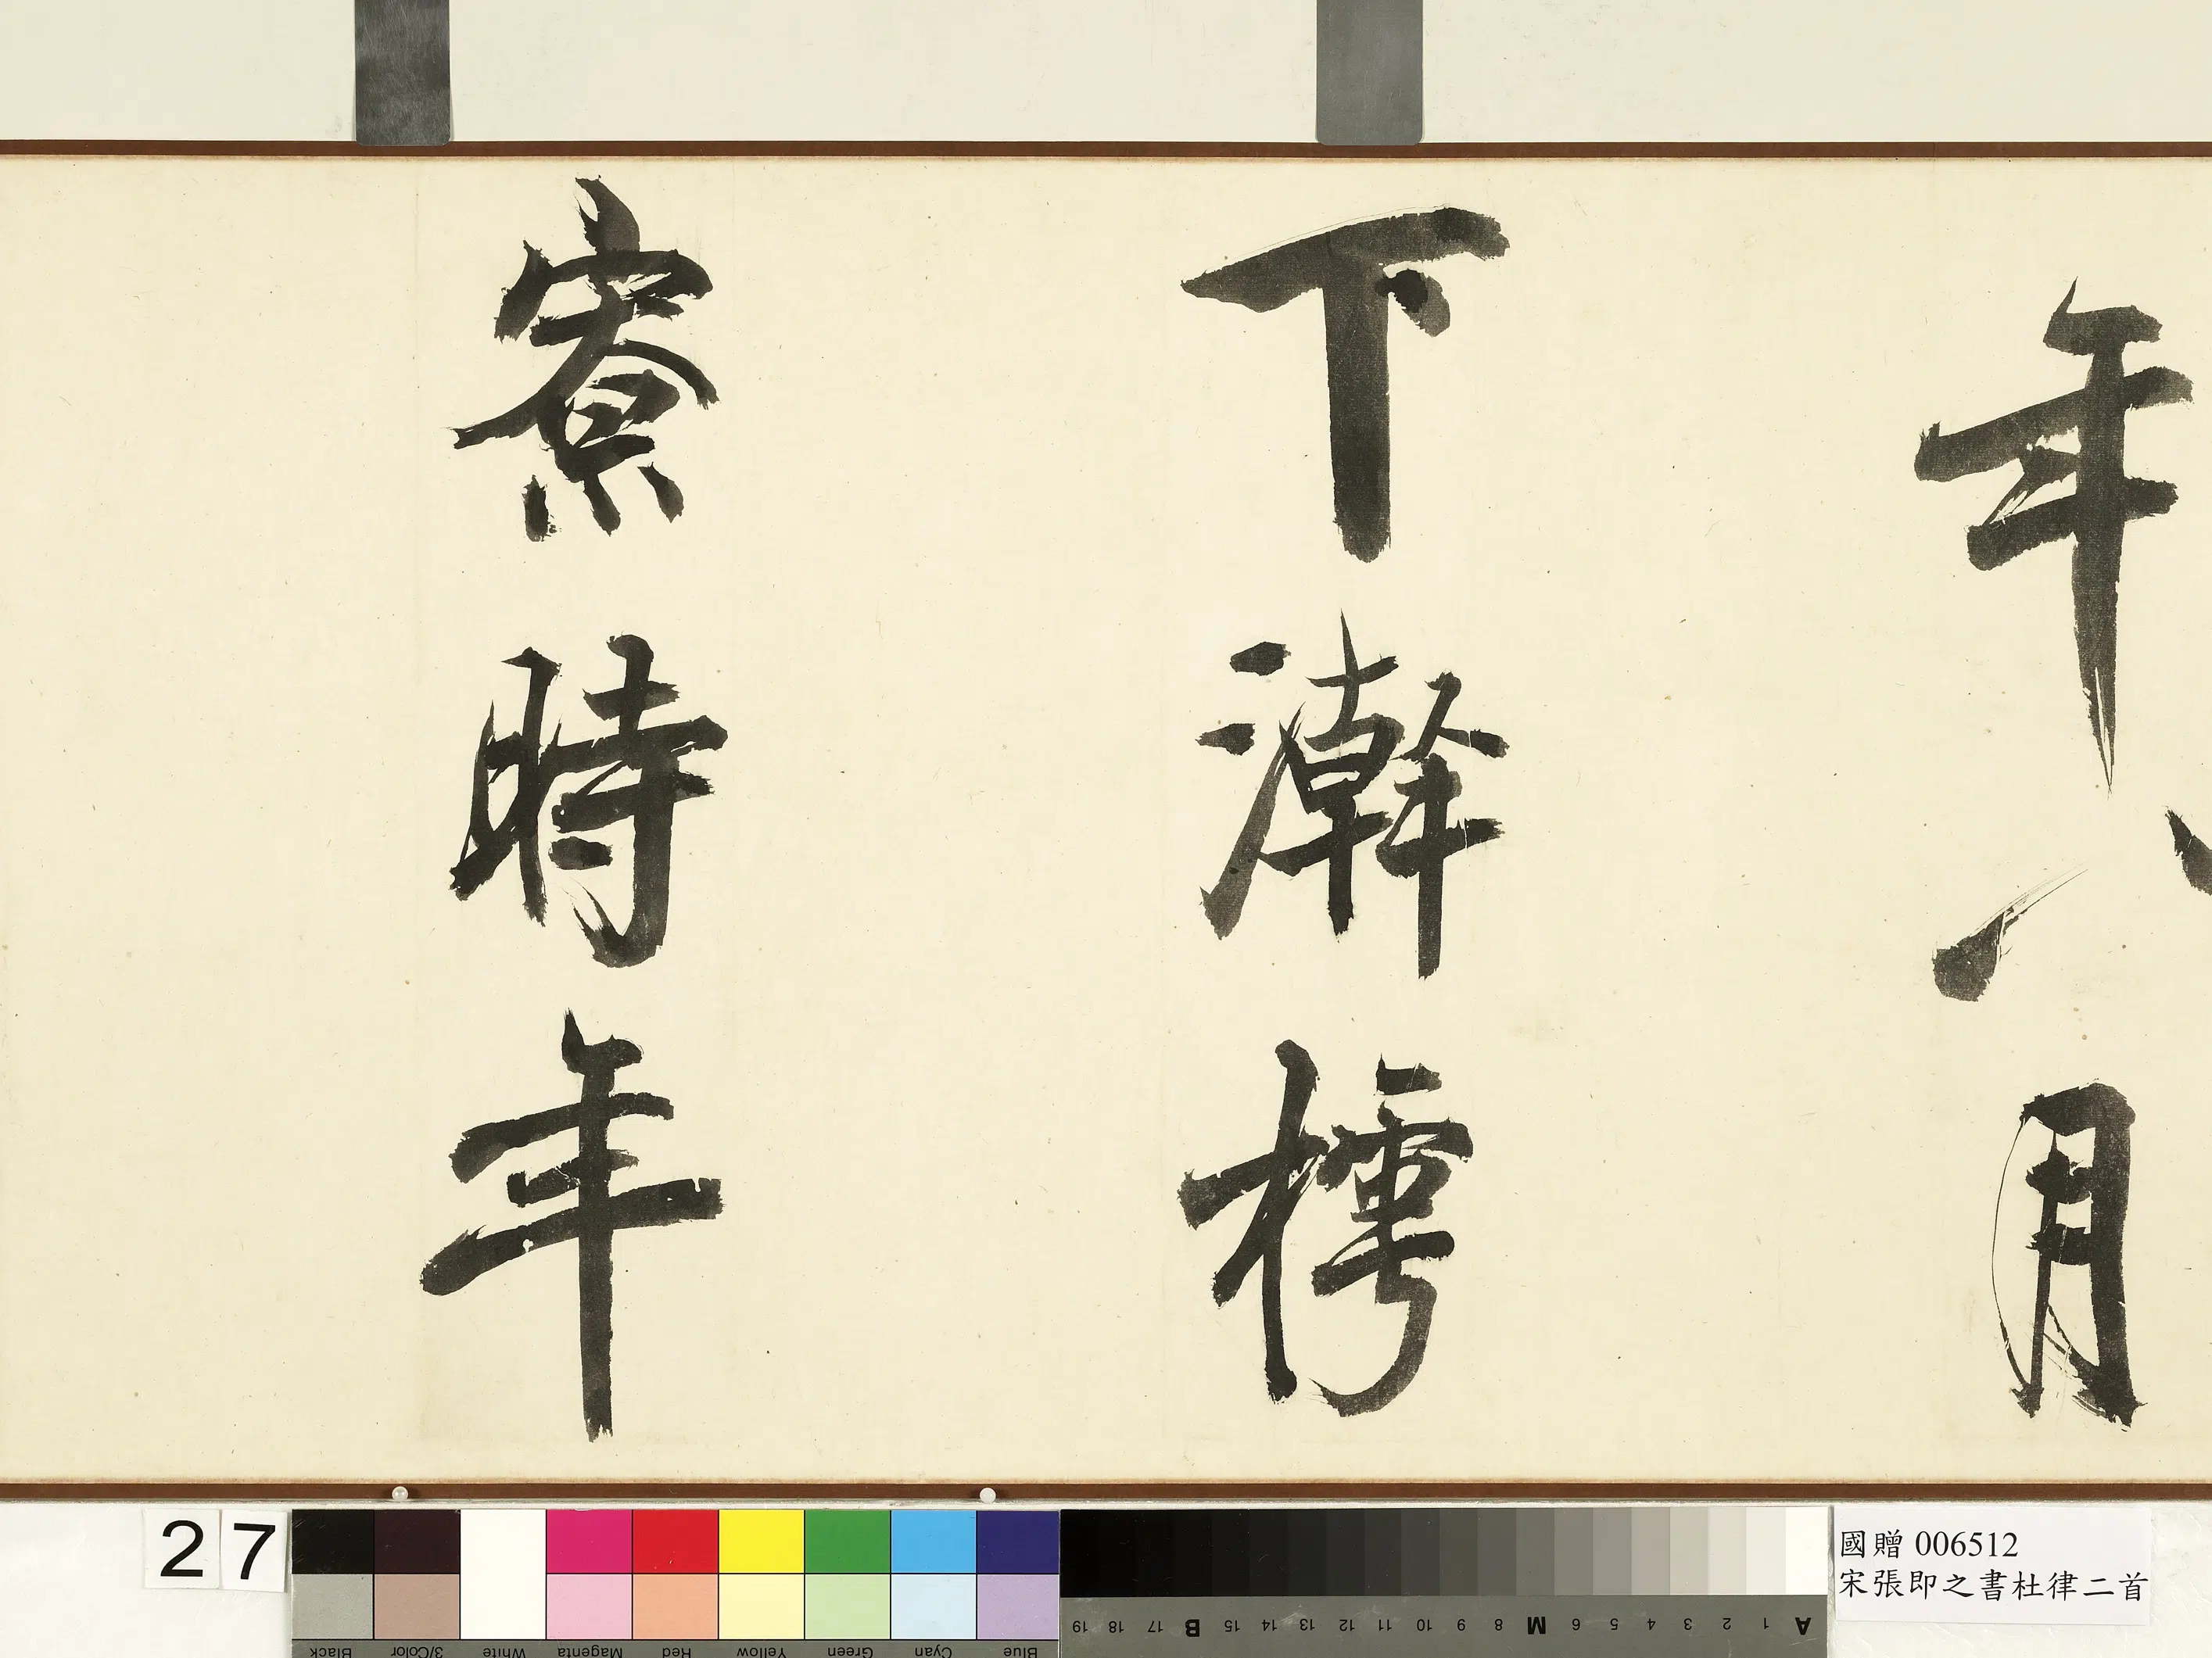 年八月
下澣樗
寮時年
27
國贈 006512
宋張即之書杜律二首
A 1 2 3 4 5 6 M 8 9 10 11 12 13 14 15 B 17 18 19
Blue Cyan Green Yellow Red Magenta White 3/Color Black